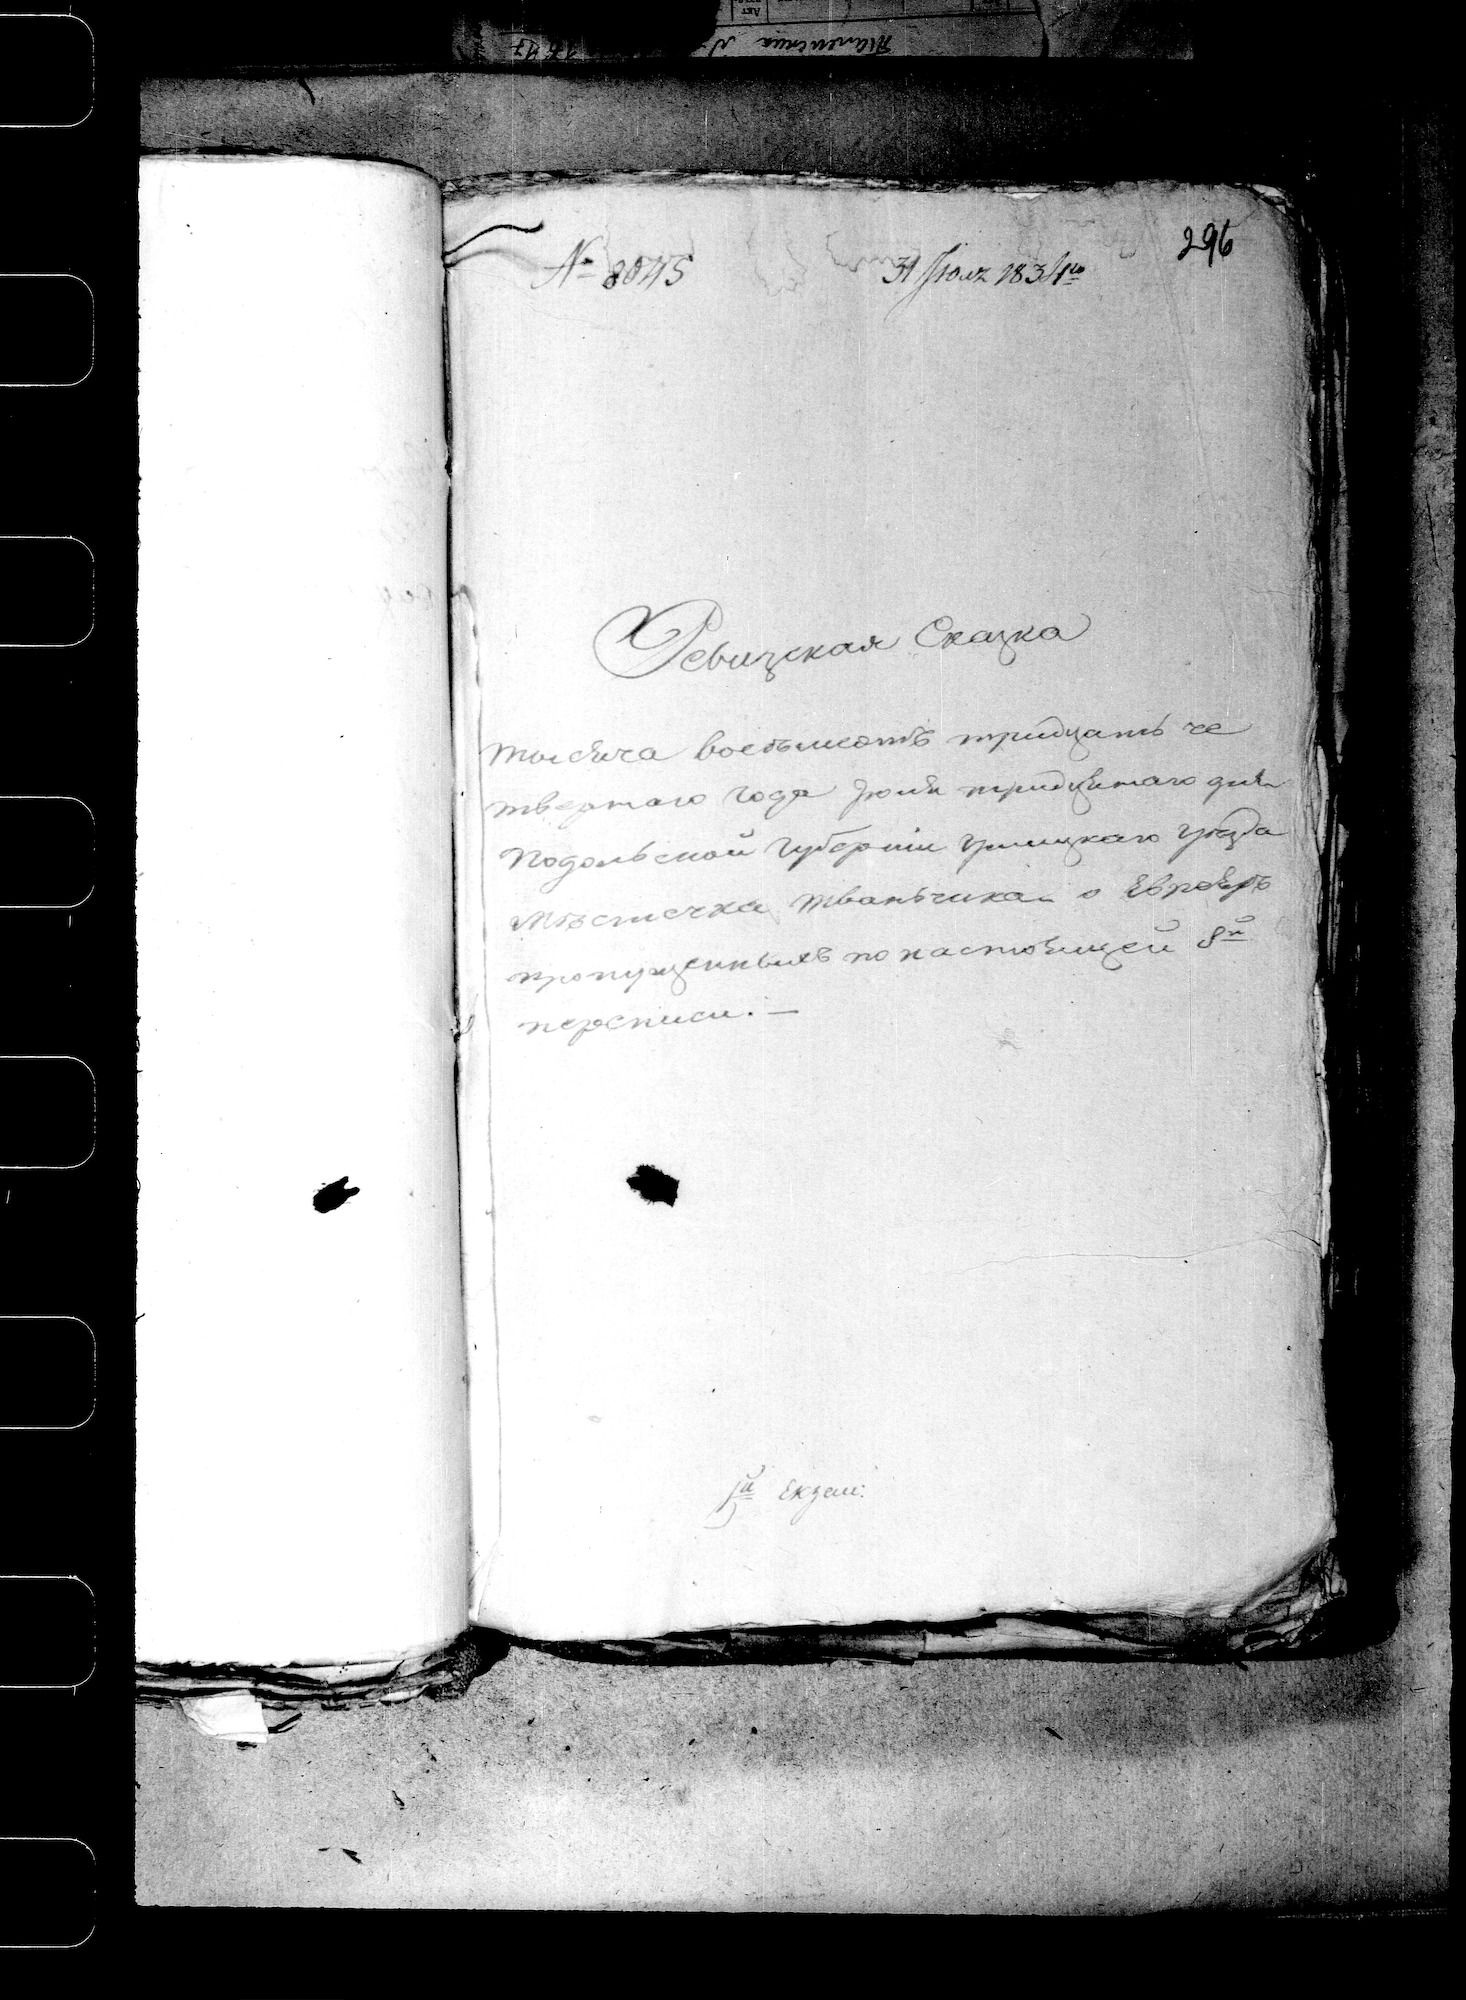 296
№ 8045 31 Июля 1834го
Ревизская Сказка
тысяча восемьсотъ тридцать че
твертаго года Июля тридцатаго дня
Подольской Губерніи Ушицкаго уезда
Местечка Жванчика о Евреяхъ
пропущенныхъ по настоящей 8й
переписи. —
1й Екзем: